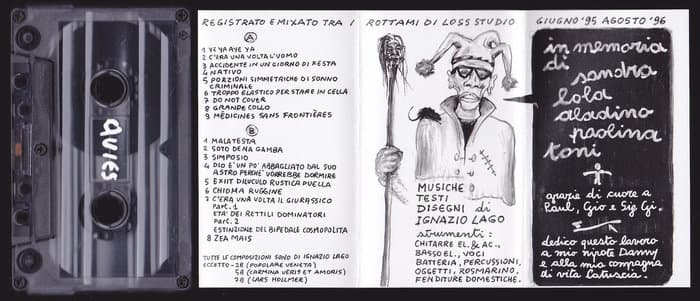 QUIES
REGISTRATO E MIXATO TRA I ROTTAMI DI LOSS STUDIO GIUGNO '95 AGOSTO '96
A
1 YE YA AYE YA
2 C'ERA UNA VOLTA L'UOMO
3 ACCIDENTE IN UN GIORNO DI FESTA
4 NATIVO
5 PORZIONI SIMMETRICHE DI SONNO
CRIMINALE
6 TROPPO ELASTICO PER STARE IN CELLA
7 DO NOT COVER
8 GRANDE COLLO
9 MÉDICINES SANS FRONTIÈRES
B
1 MALATESTA
2 SOTO DE NA GAMBA
3 SIMPOSIO
4 DIO E' UN PO' ABBAGLIATO DAL SUO
ASTRO PERCHE' VORREBBE DORMIRE
5 EXIIT DILUCULO RUSTICA PUELLA
6 CHIOMA RUGGINE
7 C'ERA UNA VOLTA IL GIURASSICO
Part. 1
ETA' DEI RETTILI DOMINATORI
Part. 2
ESTINZIONE DEL BIPEDALE COSMOPOLITA
8 ZEA MAIS
TUTTE LE COMPOSIZIONI SONO DI IGNAZIO LAGO
ECCETTO - 2B (POPOLARE VENETA)
5B (CARMINA VERIS ET AMORIS)
7B (LARS HOLLMER)
MUSICHE
TESTI
DISEGNI di
IGNAZIO LAGO
strumenti:
CHITARRE EL. & AC.,
BASSO EL., VOCI
BATTERIA, PERCUSSIONI,
OGGETTI, ROSMARINO,
FENDITURE DOMESTICHE.
in memoria
di sandra
lola
aladino
paolina
toni
grazie di cuore a
Paul, Gio e Sig Gi.
dedico questo lavoro
a mio nipote Danny
e alla mia compagna
di vita Catuscia.